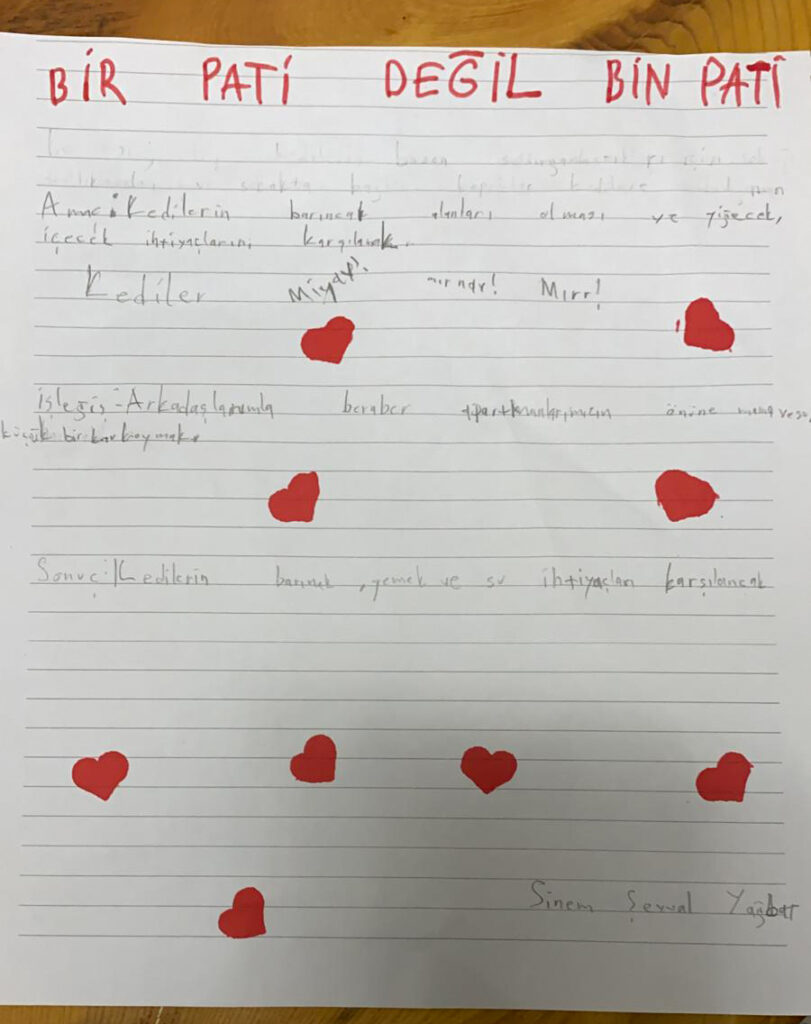 BİR PATİ DEĞİL BİN PATİ
bazen için
Amaç: Kedilerin barıncak alanları olması ve yiğecek,
içecek ihtiyaçlarını karşılamak.
Kediler Miyav! mırnav! Mırr!
işleğiş-Arkadaşlarımla beraber apartmanlarımızın önüne mama ve su,
küçük bir kap koymak.
Sonuç: Kedilerin barınak, yemek ve su ihtiyaçları karşılancak
Sinem Şevval